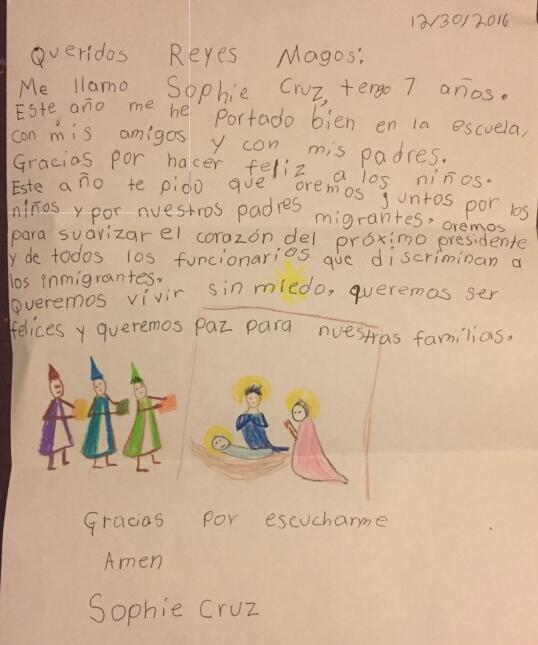 12/30/2016
Queridos Reyes Magos:
Me llamo Sophie Cruz, tengo 7 años.
Este año me he portado bien en la escuela,
con mis amigos y con mis padres.
Gracias por hacer feliz a los niños.
Este año te pido que oremos juntos por los
niños y por nuestros padres migrantes, oremos
para suavizar el corazón del próximo presidente
y de todos los funcionarios que discriminan a
los inmigrantes.
Queremos vivir sin miedo, queremos ser
felices y queremos paz para nuestras familias.
Gracias por escucharme
Amen
Sophie Cruz